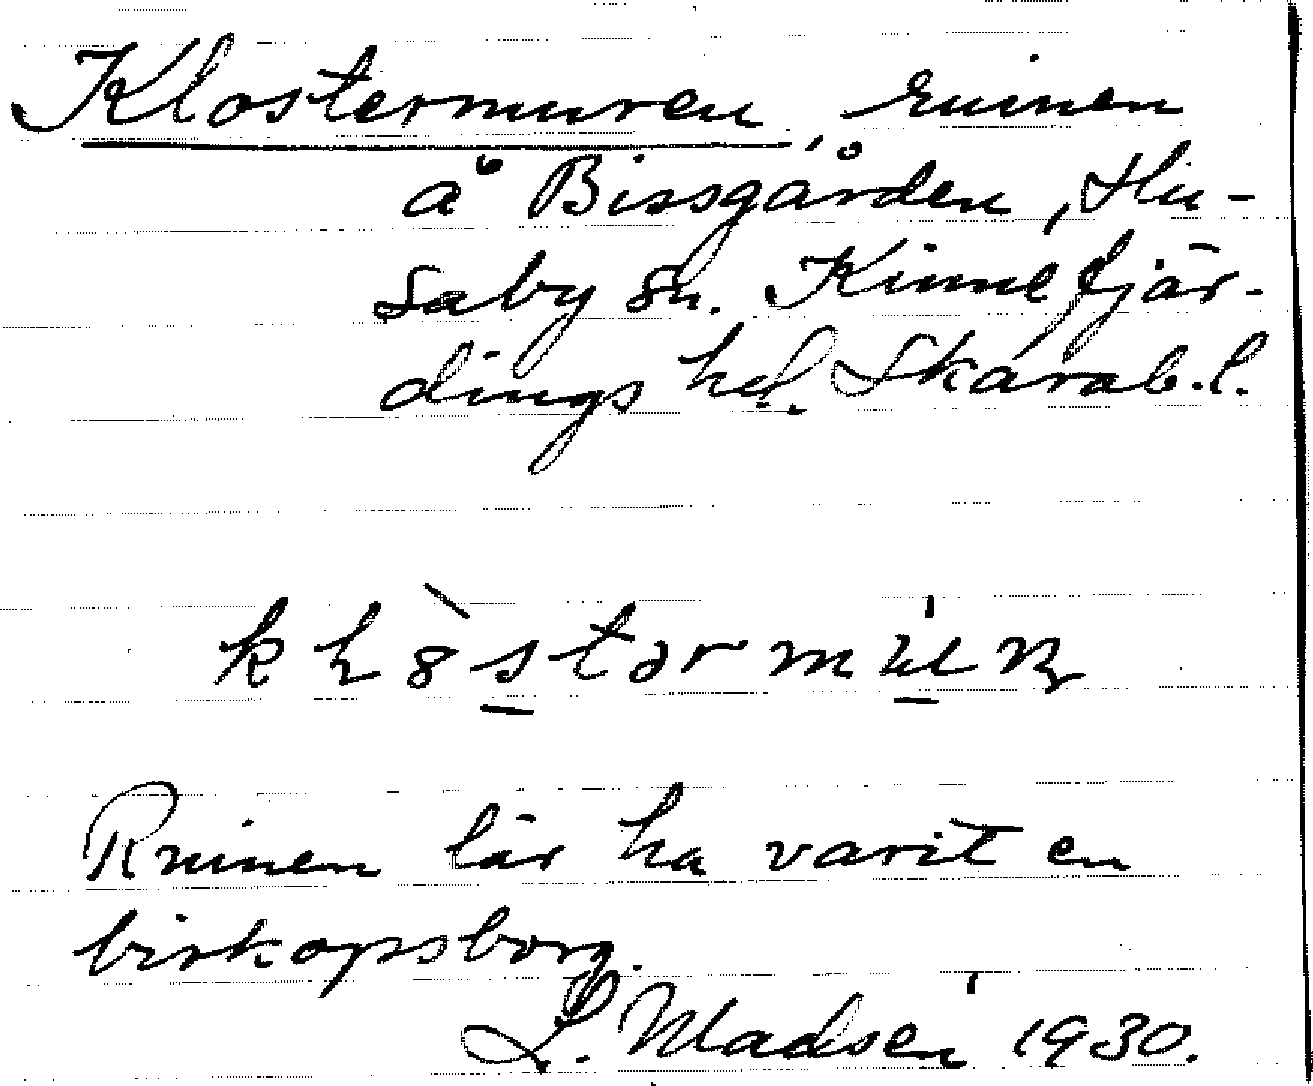 Klostermuren, ruinen
å Bissgården, Hu-
saby sn. Kinnefjär-
dings hd. Skarab.l.
Ruinen lär ha varit en
biskopsborg.
L. Madsén 1930.